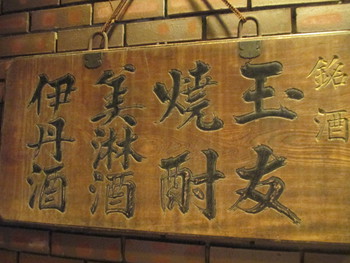 銘酒
玉友
燒酎
美淋酒
伊丹酒